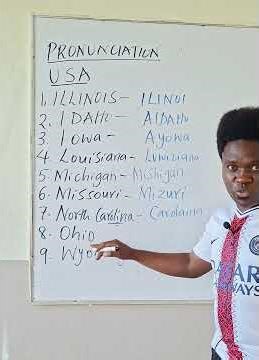 PRONUNCIATION
USA
1. ILLINOIS - ILINOI
2. IDAHO - AIDAHO
3. Iowa - Ayowa
4. Louisiana - Luwiziana
5. Michigan - Mishigan
6. Missouri - Mizuri
7. North Carolina - Carolaina
8. Ohio
9.
AR
WAYS